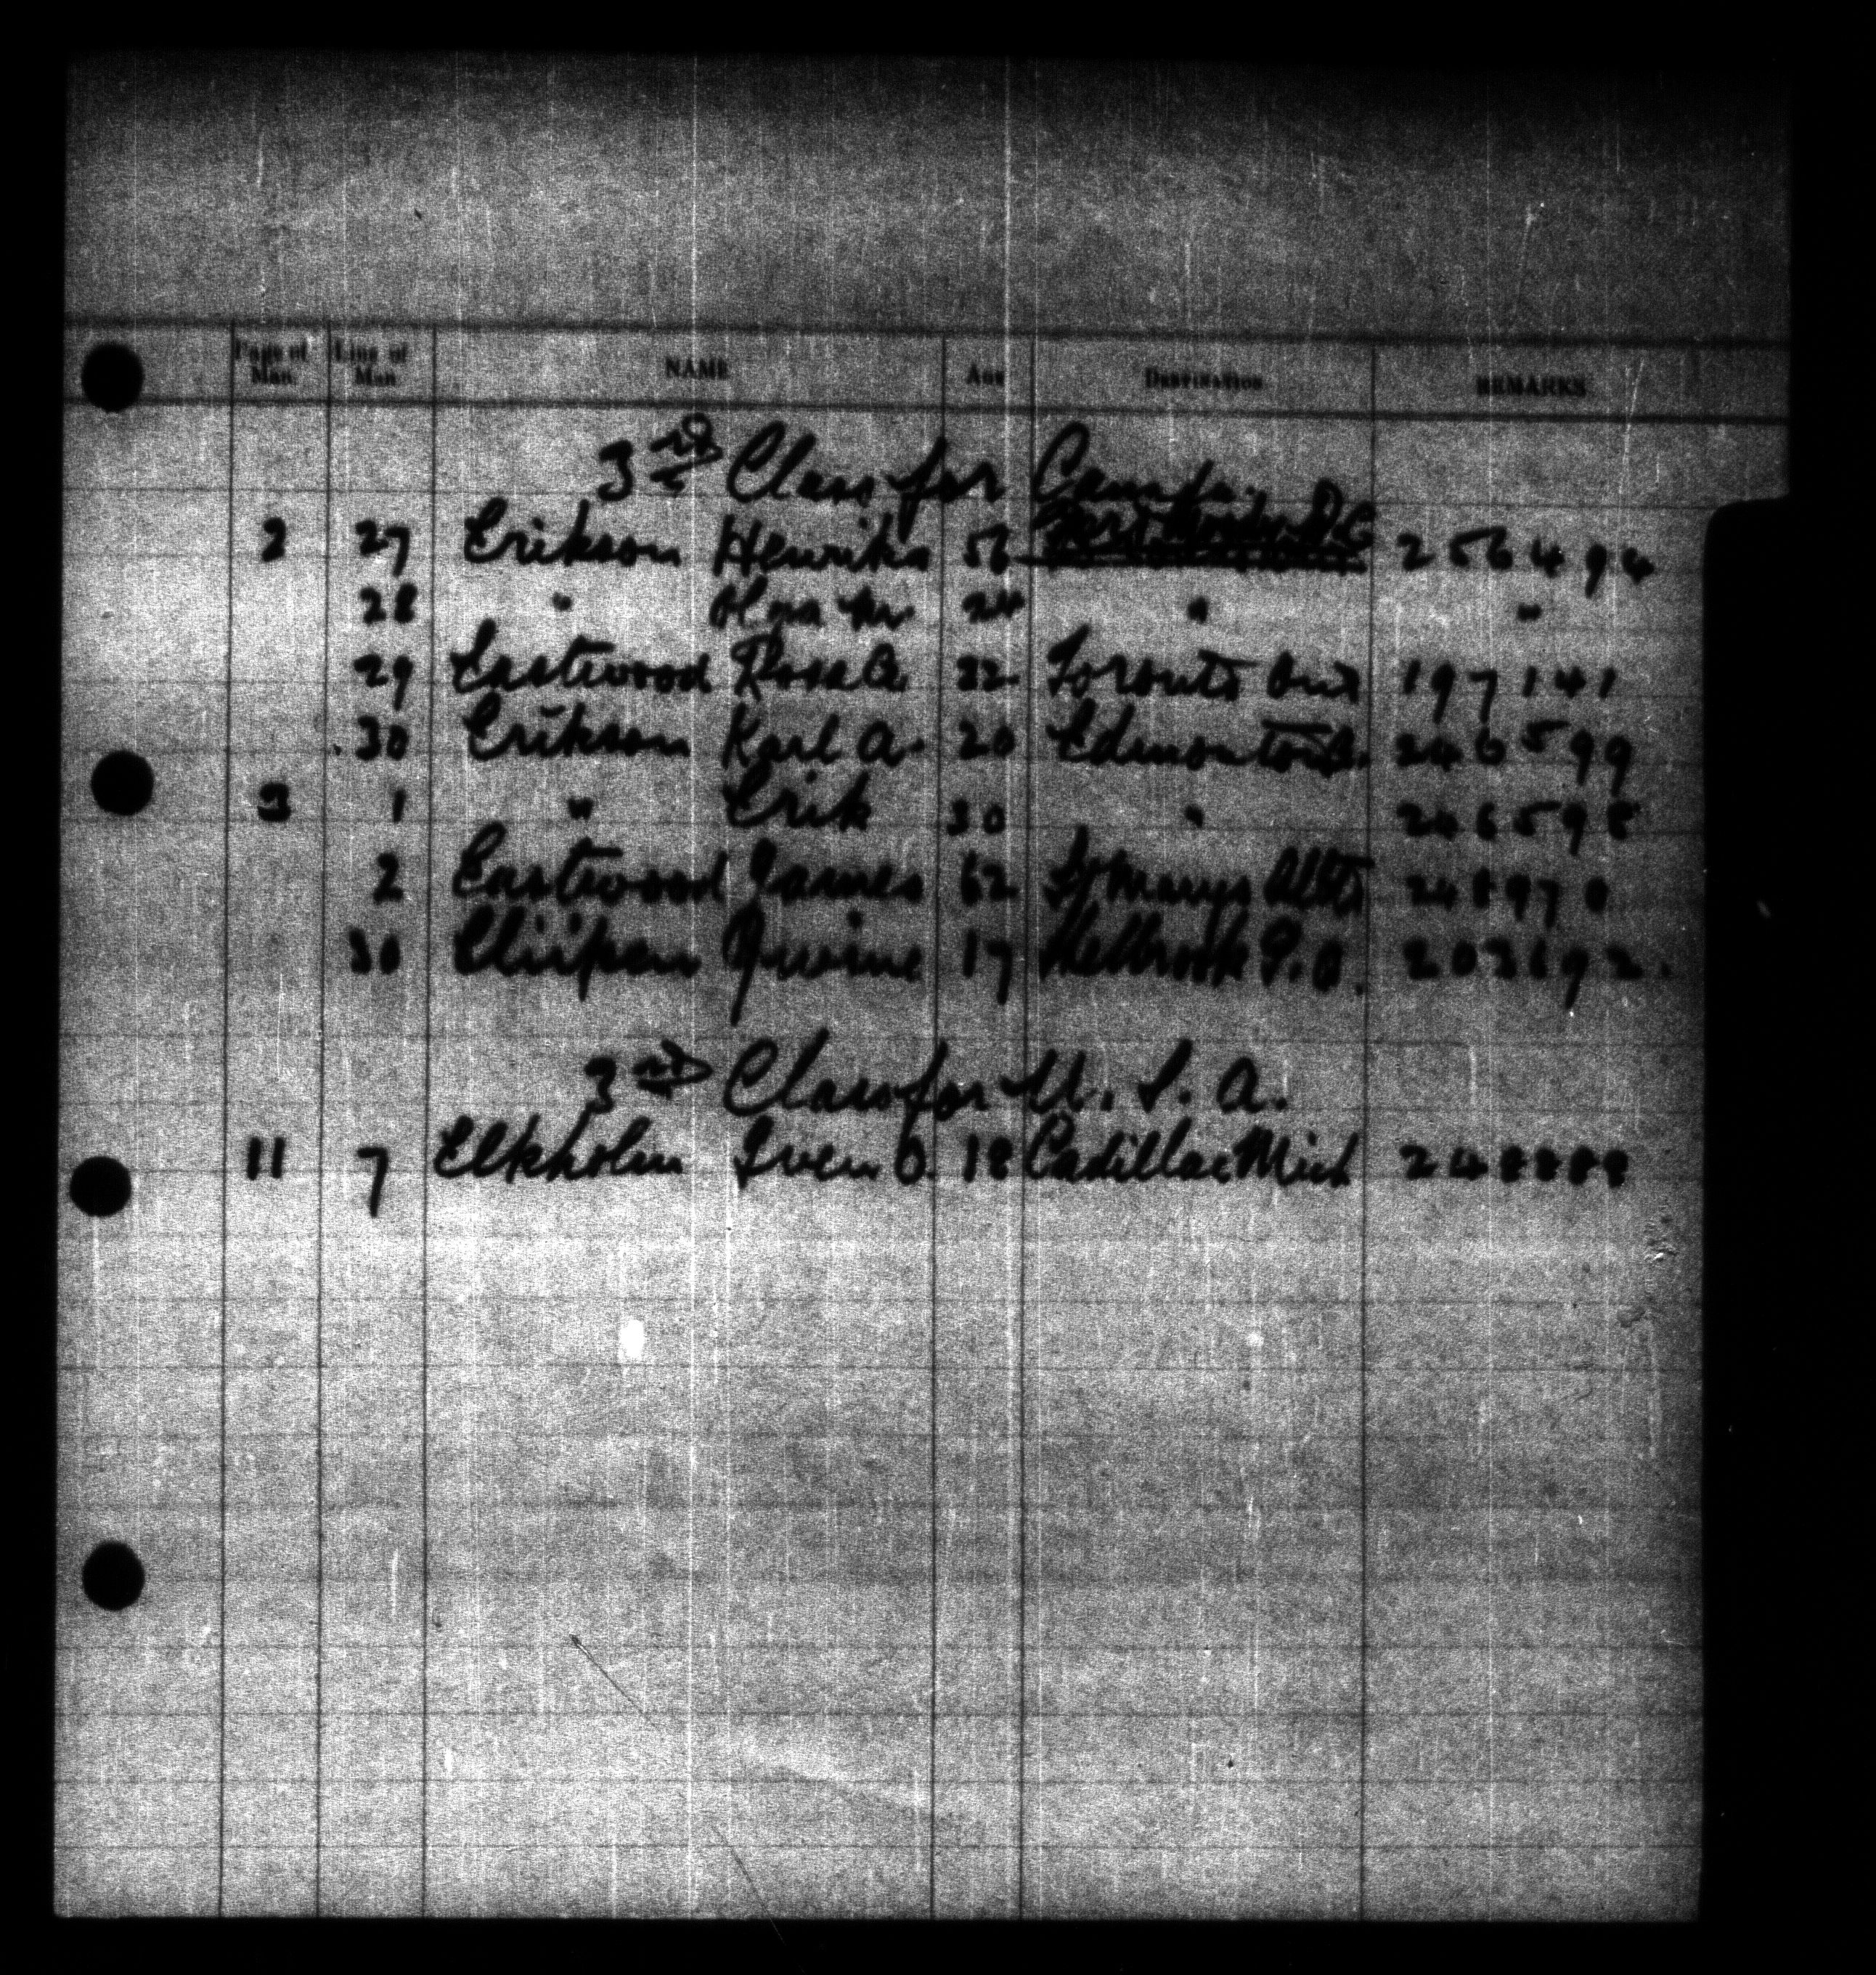 Page of Man. Line of Man NAME AGE DESTINATION REMARKS
3rd Class for Canada.
2 27 Erikson Henrika 56 256494
28 " 24 " "
29 Eastwood Rosa A. 22 Toronto Ont 197141
30 Erikson Karl A. 20 Edmonton A. 246599
3 1 " Erik 30 " 246598
2 Eastwood James 62 St Marys
30 17 P.Q. 203692.
3rd Class for U.S.A.
11 7 Elkholm Iven O. 18 Cadillac Mich 248888